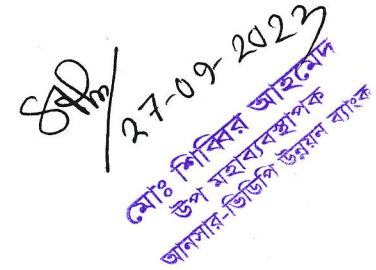 27-09-2023
মোঃ শিব্বির আহমেদ
উপ মহাব্যবস্থাপক
আনসার-ভিডিপি উন্নয়ন ব্যাংক